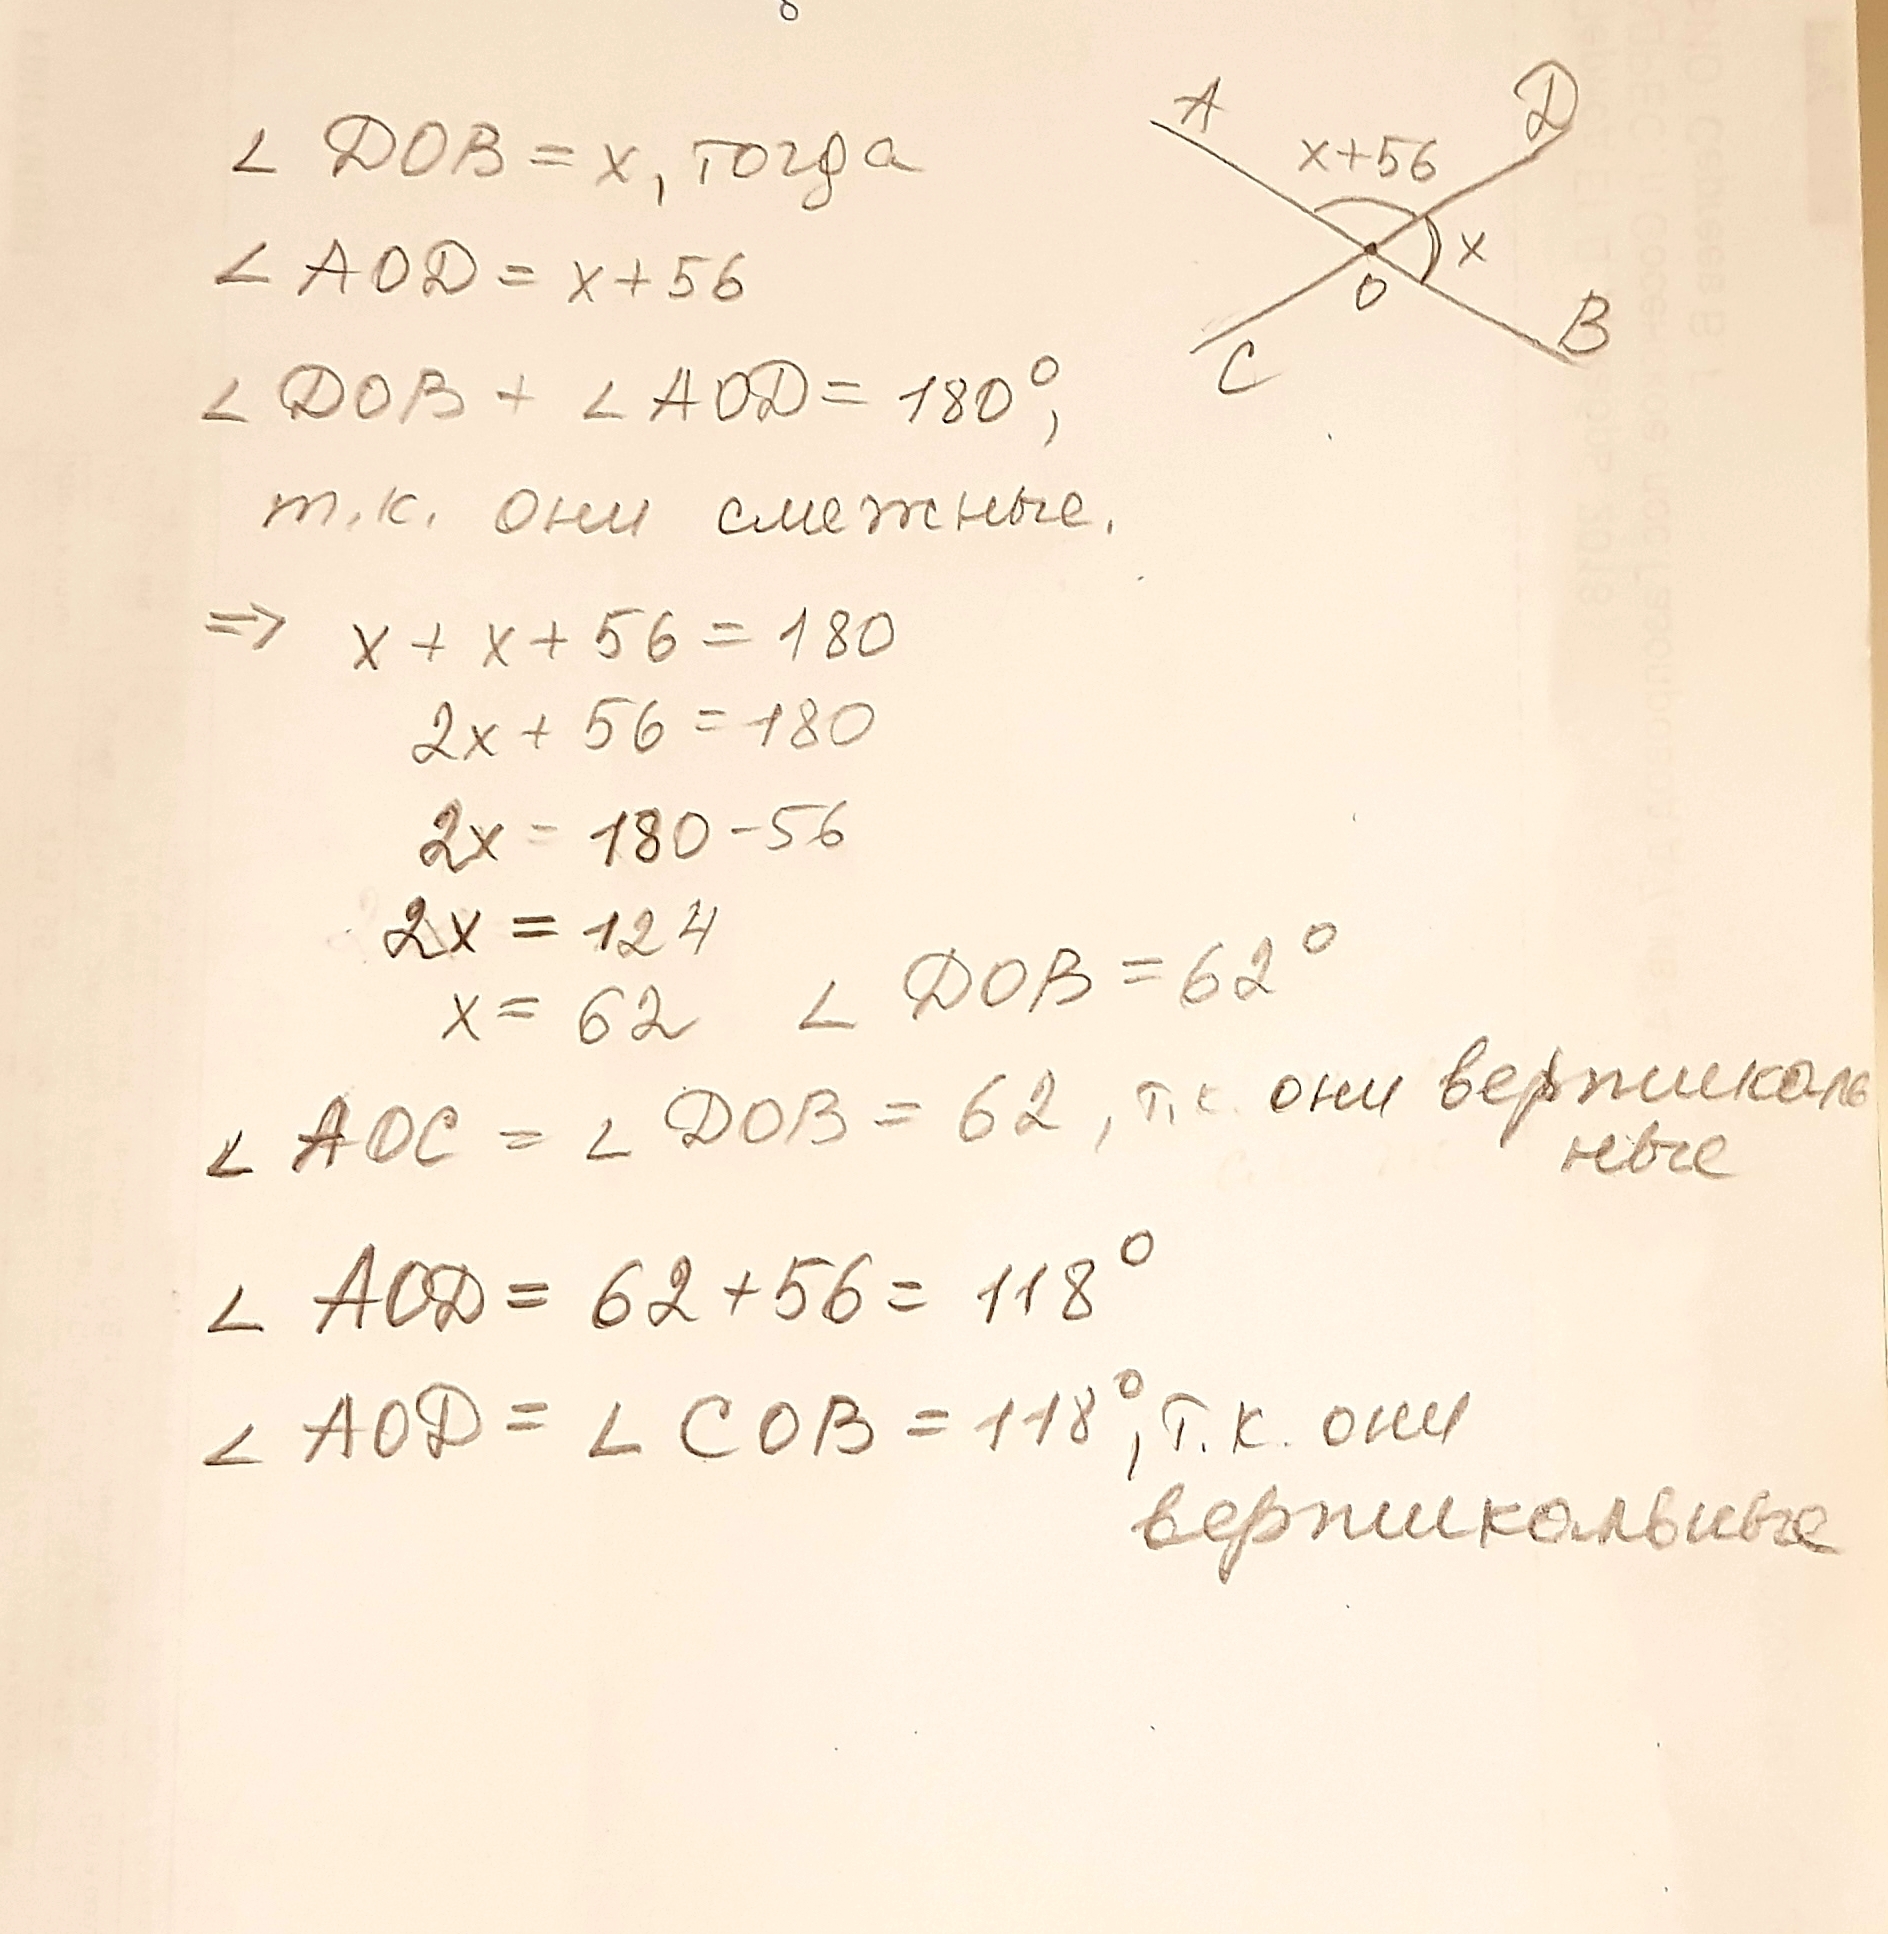 ∠ DOB = x, тогда
∠ AOD = x+56
∠ DOB + ∠ AOD = 180°,
т.к. они смежные.
=> x + x + 56 = 180
2x + 56 = 180
2x = 180 - 56
2x = 124
x = 62 ∠ DOB = 62°
∠ AOC = ∠ DOB = 62, т.к. они вертикаль
ные
∠ AOD = 62 + 56 = 118°
∠ AOD = ∠ COB = 118°, т.к. они
вертикальные
A
D
x+56
x
O
C
B